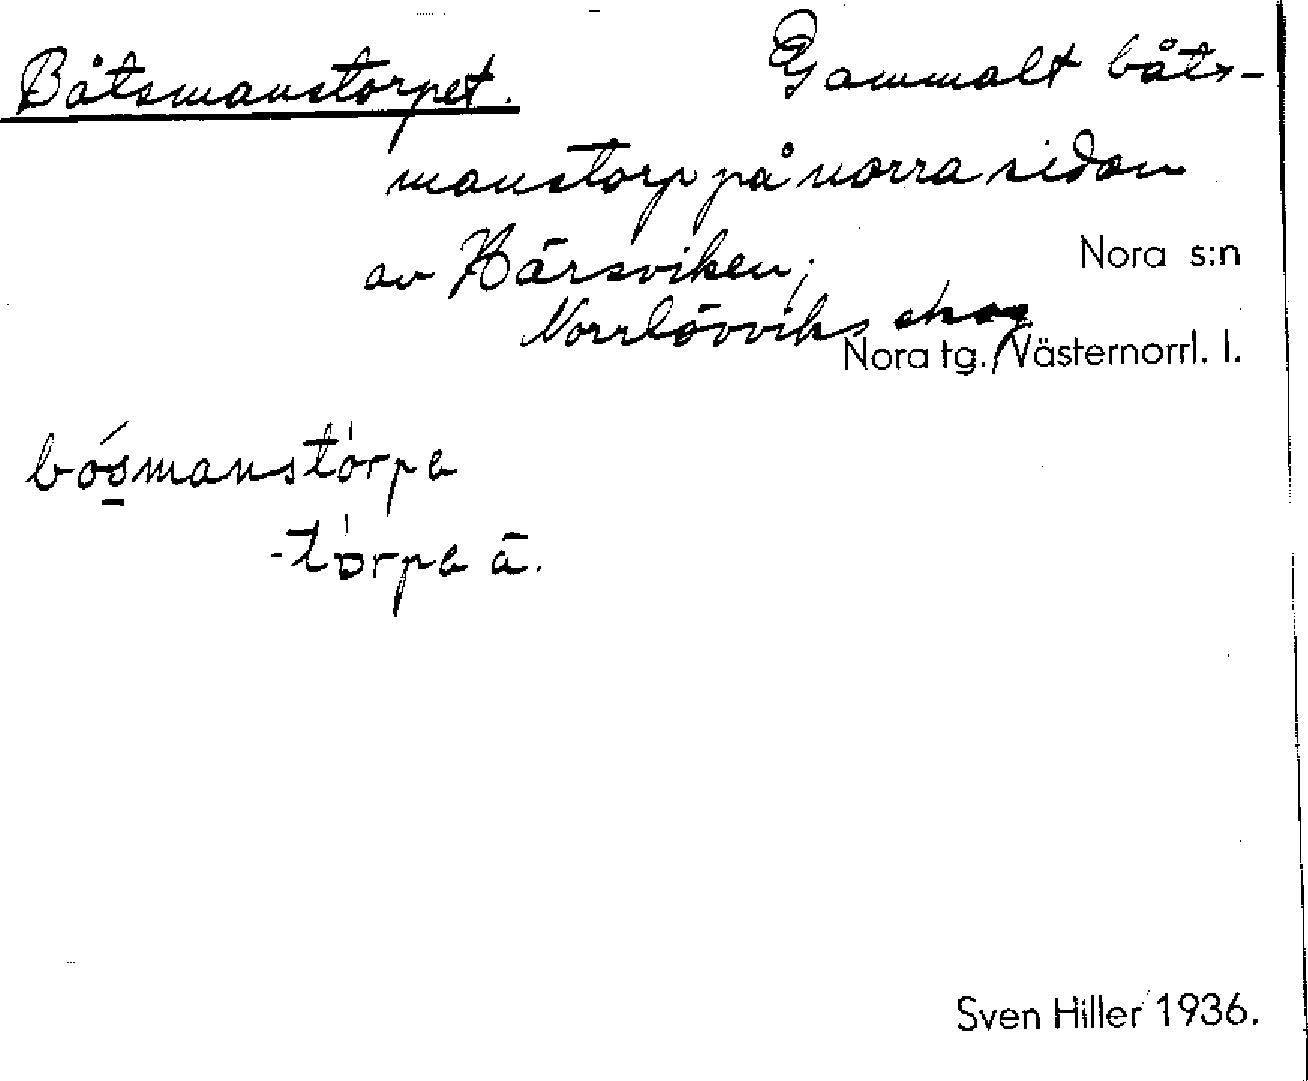 Båtsmanstorpet. Gammalt båts-
manstorp på norra sidan
av Härsviken;
Nora s:n
Norrlövviks skog
Nora tg. Västernorrl. l.
bósmanstórpa
-tórpa ä.
Sven Hiller 1936.